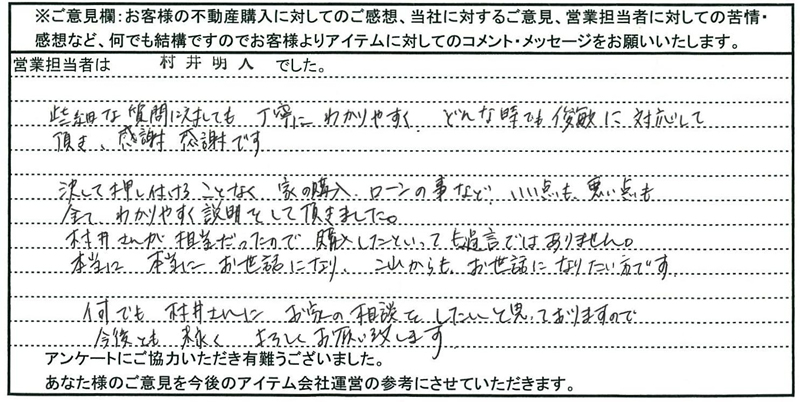 ※ご意見欄：お客様の不動産購入に対してのご感想、当社に対するご意見、営業担当者に対しての苦情・
感想など、何でも結構ですのでお客様よりアイテムに対してのコメント・メッセージをお願いいたします。
営業担当者は 村井明人 でした。
些細な質問に対しても 丁寧に わかりやすく、どんな時でも俊敏に対応して
頂き、感謝 感謝です
決して押し付けることなく 家の購入、ローンの事など、いい点も、悪い点も
全て わかりやすく説明をして頂きました。
村井さんが担当だったので 購入したといっても過言ではありません。
本当に 本当に お世話になり、これからも、お世話になりたい方です。
何でも 村井さんに お家の相談を したいと思っておりますので
今後とも 末永く よろしくお願い致します
アンケートにご協力いただき有難うございました。
あなた様のご意見を今後のアイテム会社運営の参考にさせていただきます。